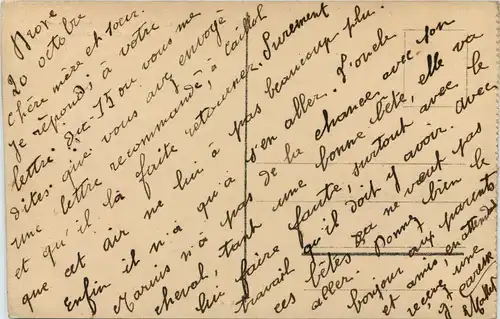 20 octobre
Chère mère et sœur
je répond, à votre
lettre. du 15 ou vous me
dites que vous avez envoyé
une lettre recommandé, à Caillol
et qu'il là faite retourner. Surement
que cet air ne lui à pas beaucoup plu.
Enfin il n'a qu'à s'en aller. J'oncle
Marius n'à pas de la chance avec son
cheval, tant une bonne bête, elle va
lui faire faute, surtout avec le
travail qu'il doit y avoir. avec
ces bêtes ça ne veut pas
aller. Donnez bien le
bonjour aux parents
et amis, en attendant
recevez une